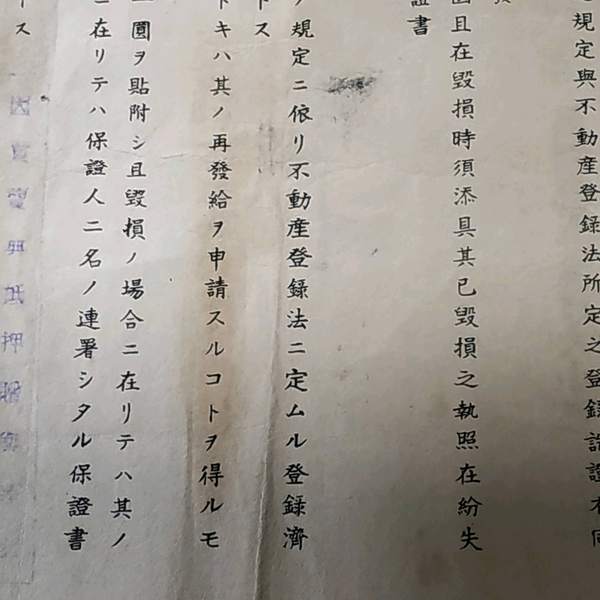 規定與不動産登録法所定之登録
圓且在毀損時須添具其已毀損之執照在紛失
證書
ノ規定ニ依リ不動産登録法ニ定ムル登録濟
トス
トキハ其ノ再發給ヲ申請スルコトヲ得ルモ
一圓ヲ貼附シ且毀損ノ場合ニ在リテハ其ノ
ニ在リテハ保證人二名ノ連署シタル保證書
ス